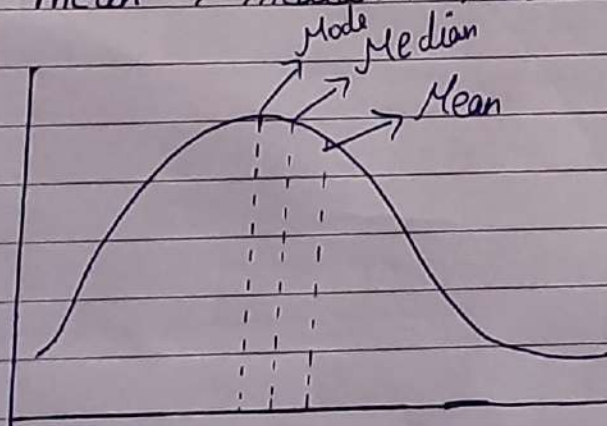 Mode
Median
Mean